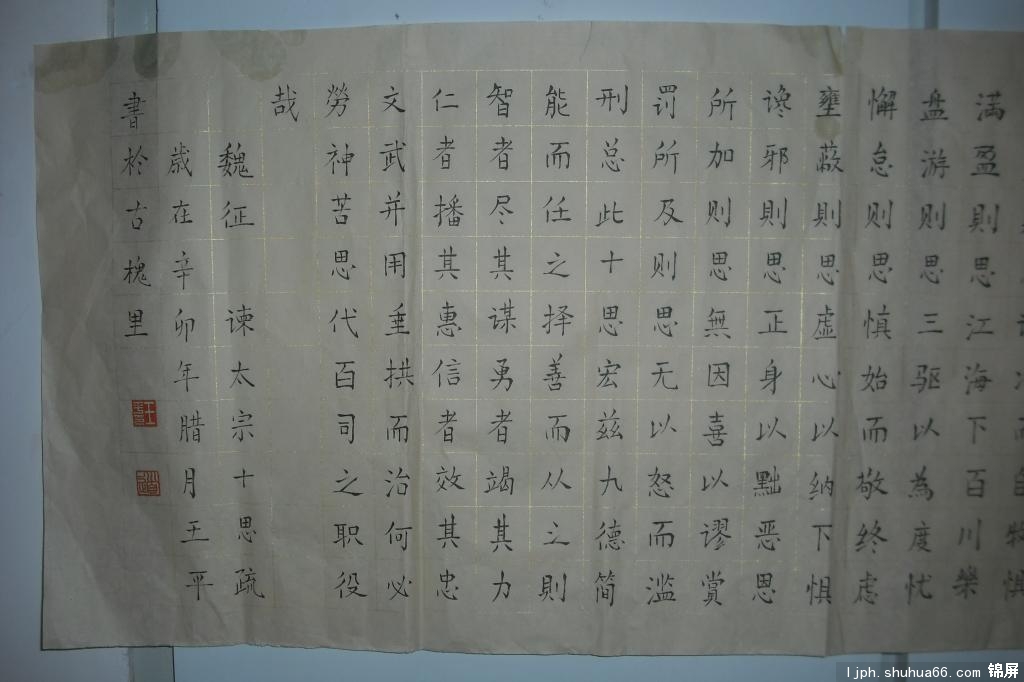 满盈則思江海下百川樂
盘游则思三驱以為度忧
懈怠则思慎始而敬终虑
壅蔽則思虚心以纳下惧
谗邪則思正身以黜恶恩
所加则思無因喜以谬赏
罚所及则思无以怒而滥
刑总此十思宏兹九德简
能而任之择善而从之則
智者尽其谋勇者竭其力
仁者播其惠信者效其忠
文武并用垂拱而治何必
勞神苦思代百司之职役
哉
魏征 谏太宗十思疏
歲在辛卯年腊月王平
書於古槐里
ljph.shuhua66.com 锦屏